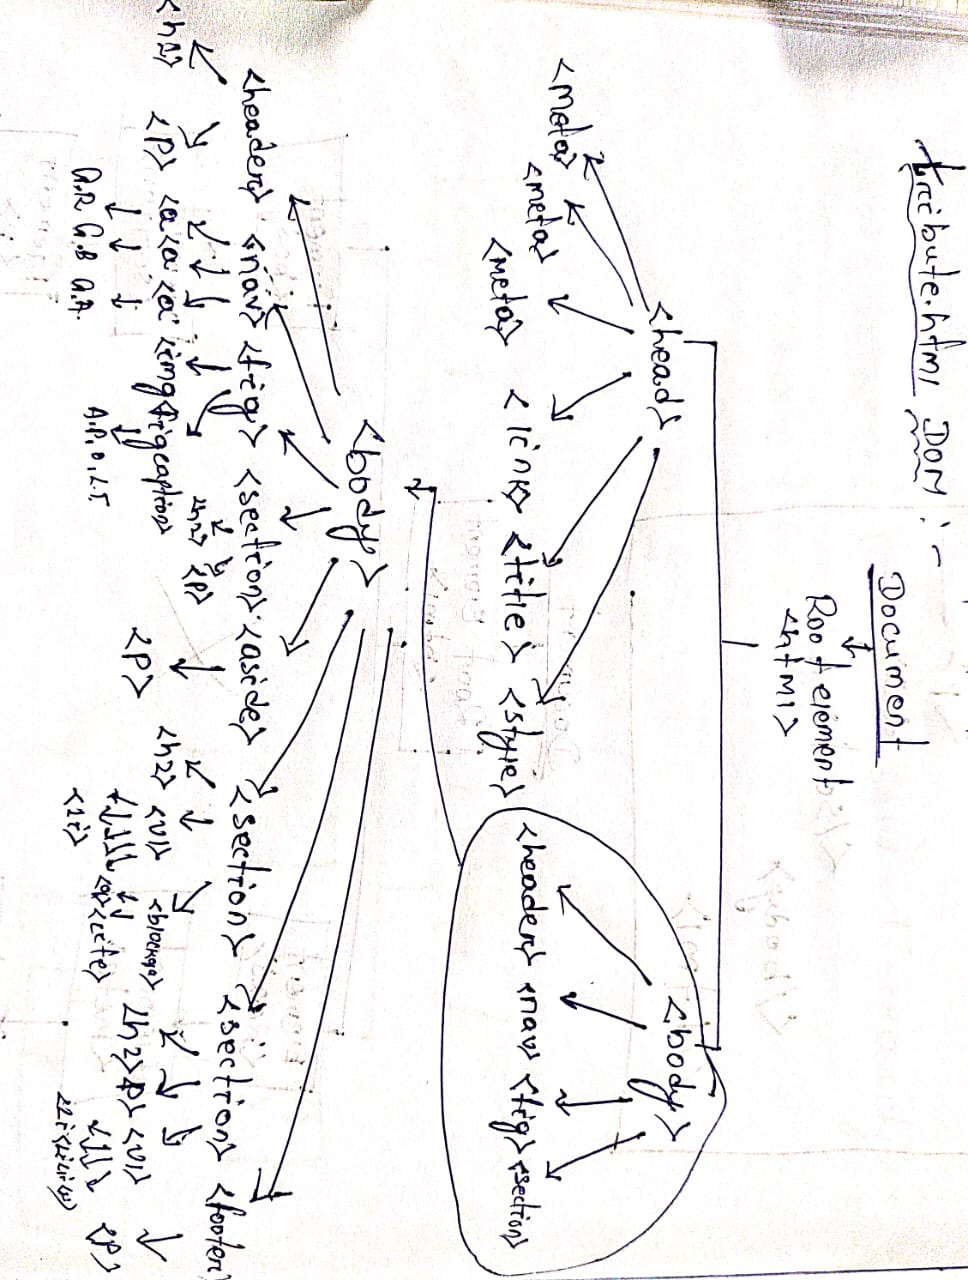 tribute.html DOM :-
Document
Root element
<html>
<head> <body>
<meta> <meta> <meta> <link> <title> <style> <header> <nav> <fig> <section>
<body>
<header> <nav> <fig> <section> <aside> <section> <section> <footer>
<h2> <p>
<p> <a <a <a <img <figcaption>
<p> <h2> <ul> <h2> <p> <ul> <p>
A.P, O, L.T.
<cite>
<li>